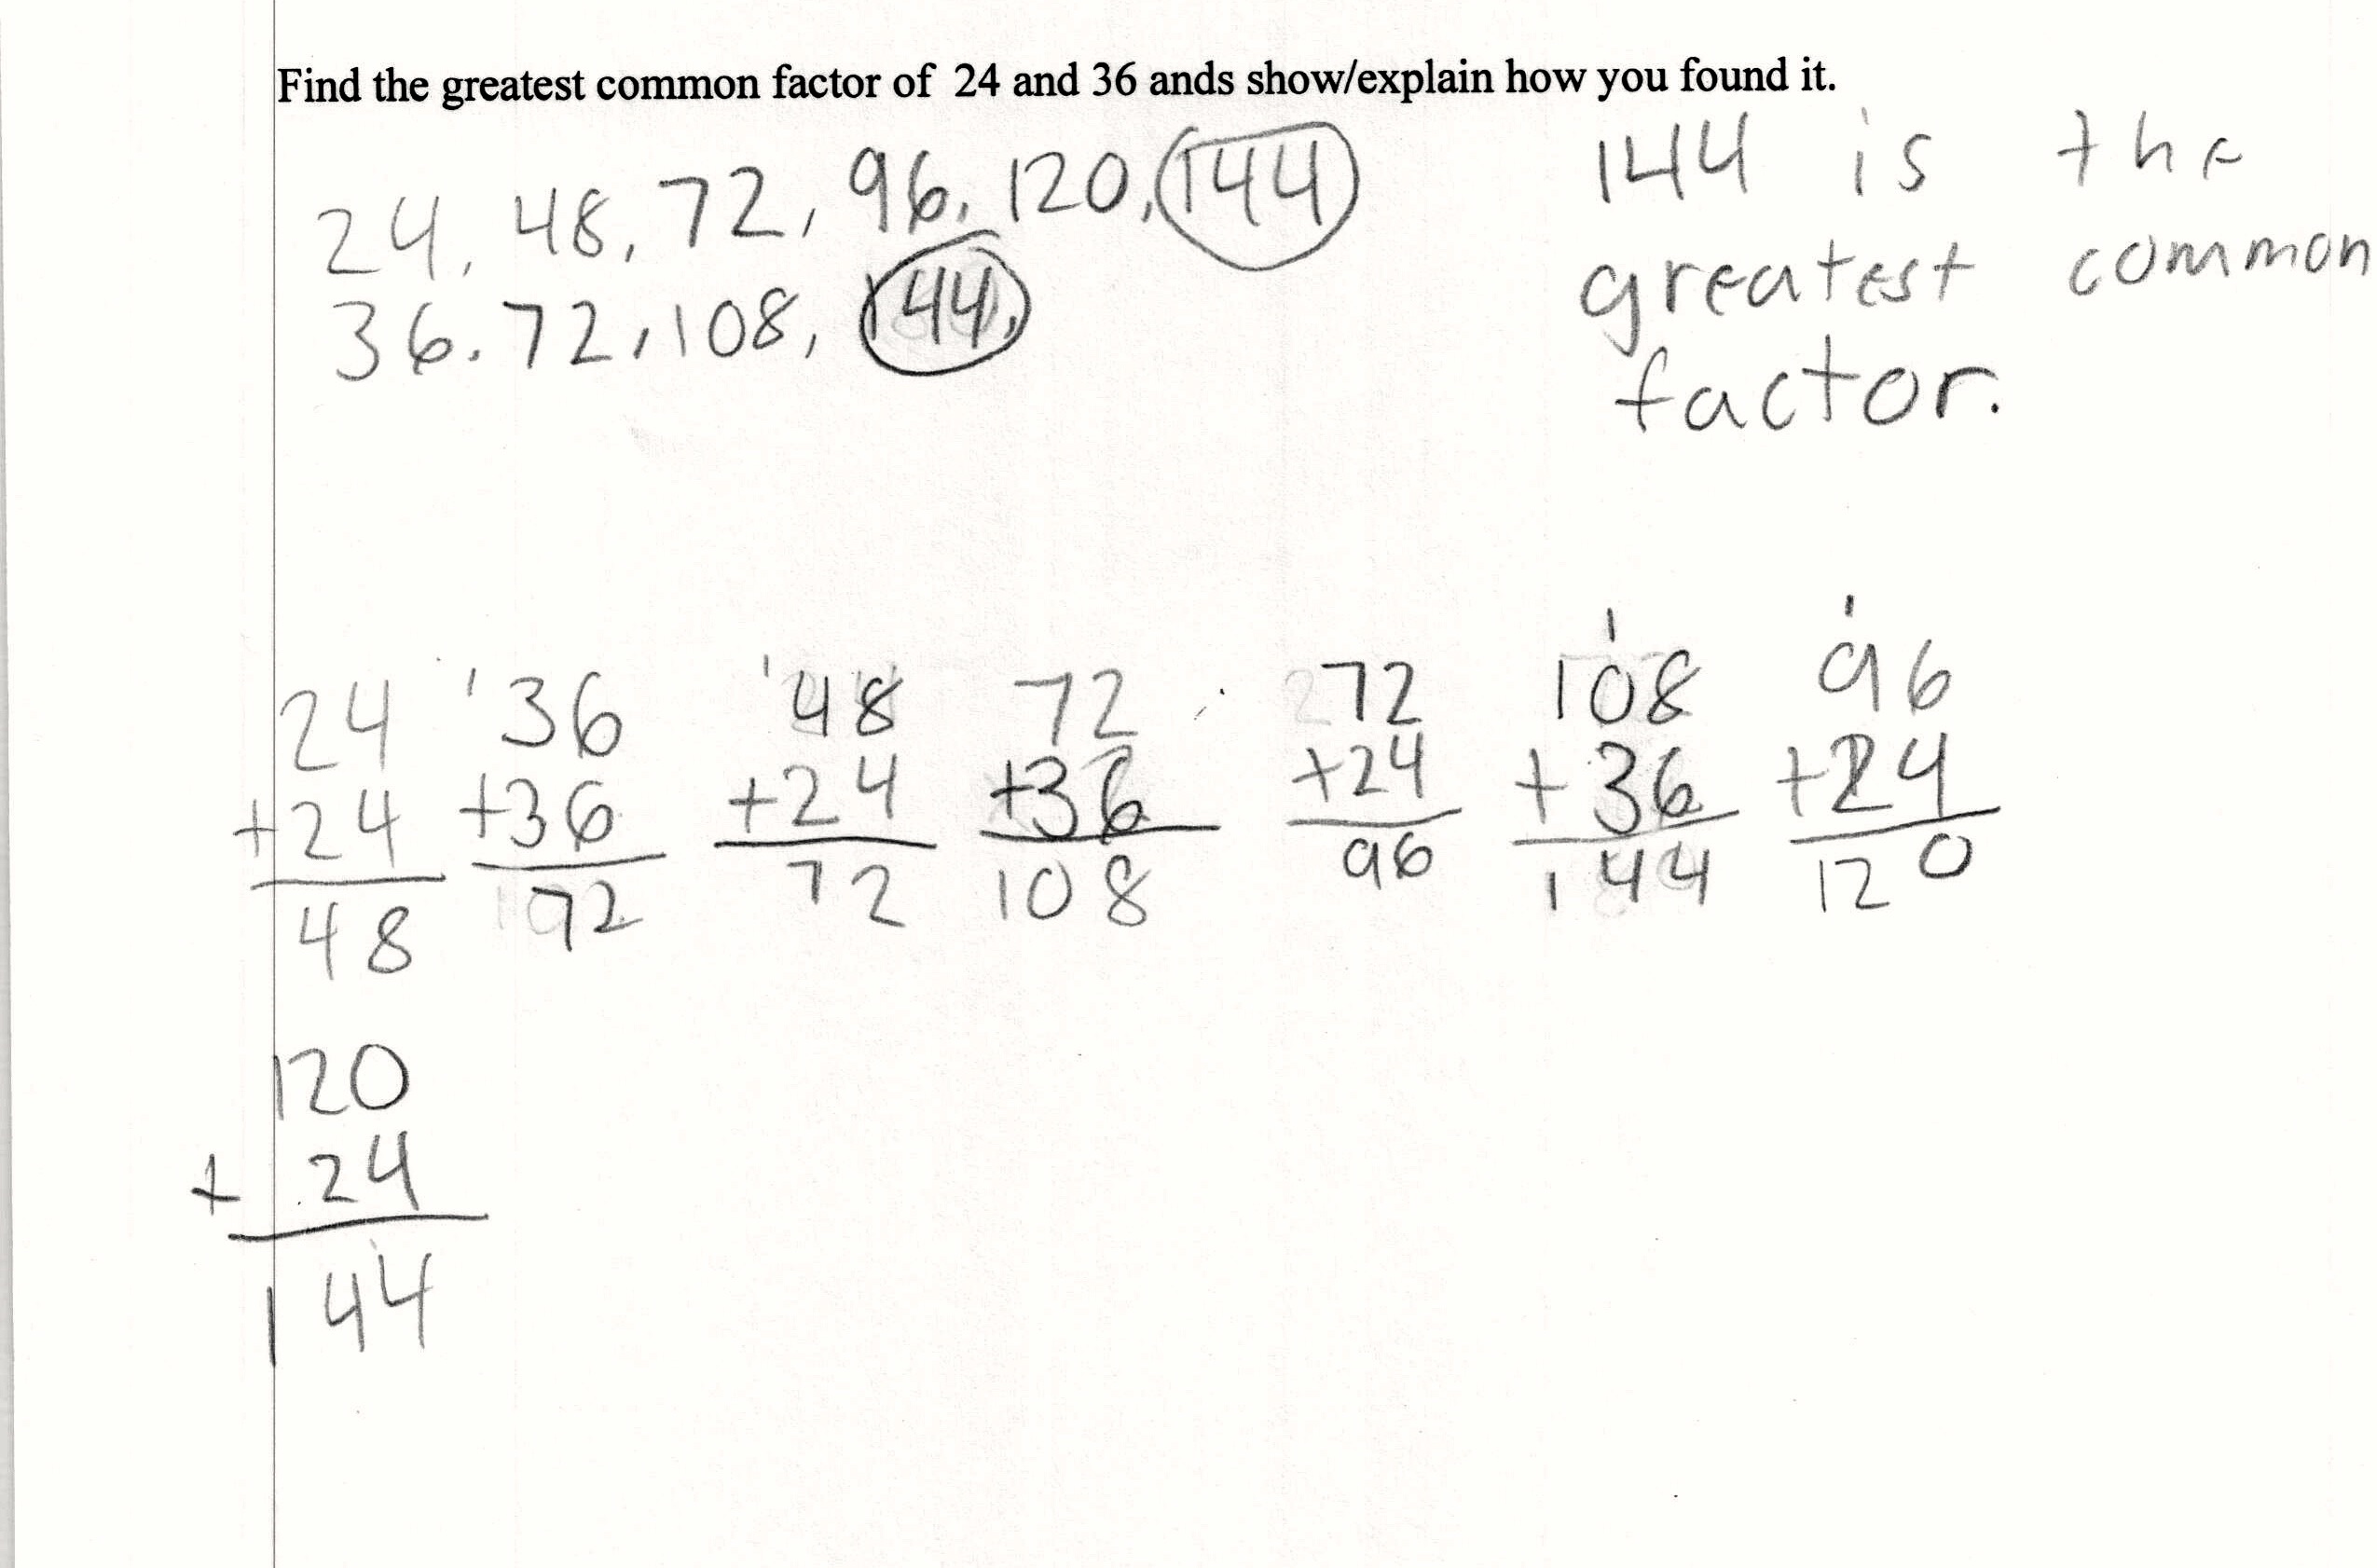 Find the greatest common factor of 24 and 36 ands show/explain how you found it.
24, 48, 72, 96, 120, 144
36. 72, 108, 144,
144 is the
greatest common
factor.
24
+24
48
1
36
+36
72
1
48
+24
72
72
+36
108
72
+24
96
1
108
+36
144
1
96
+24
120
120
+ 24
144